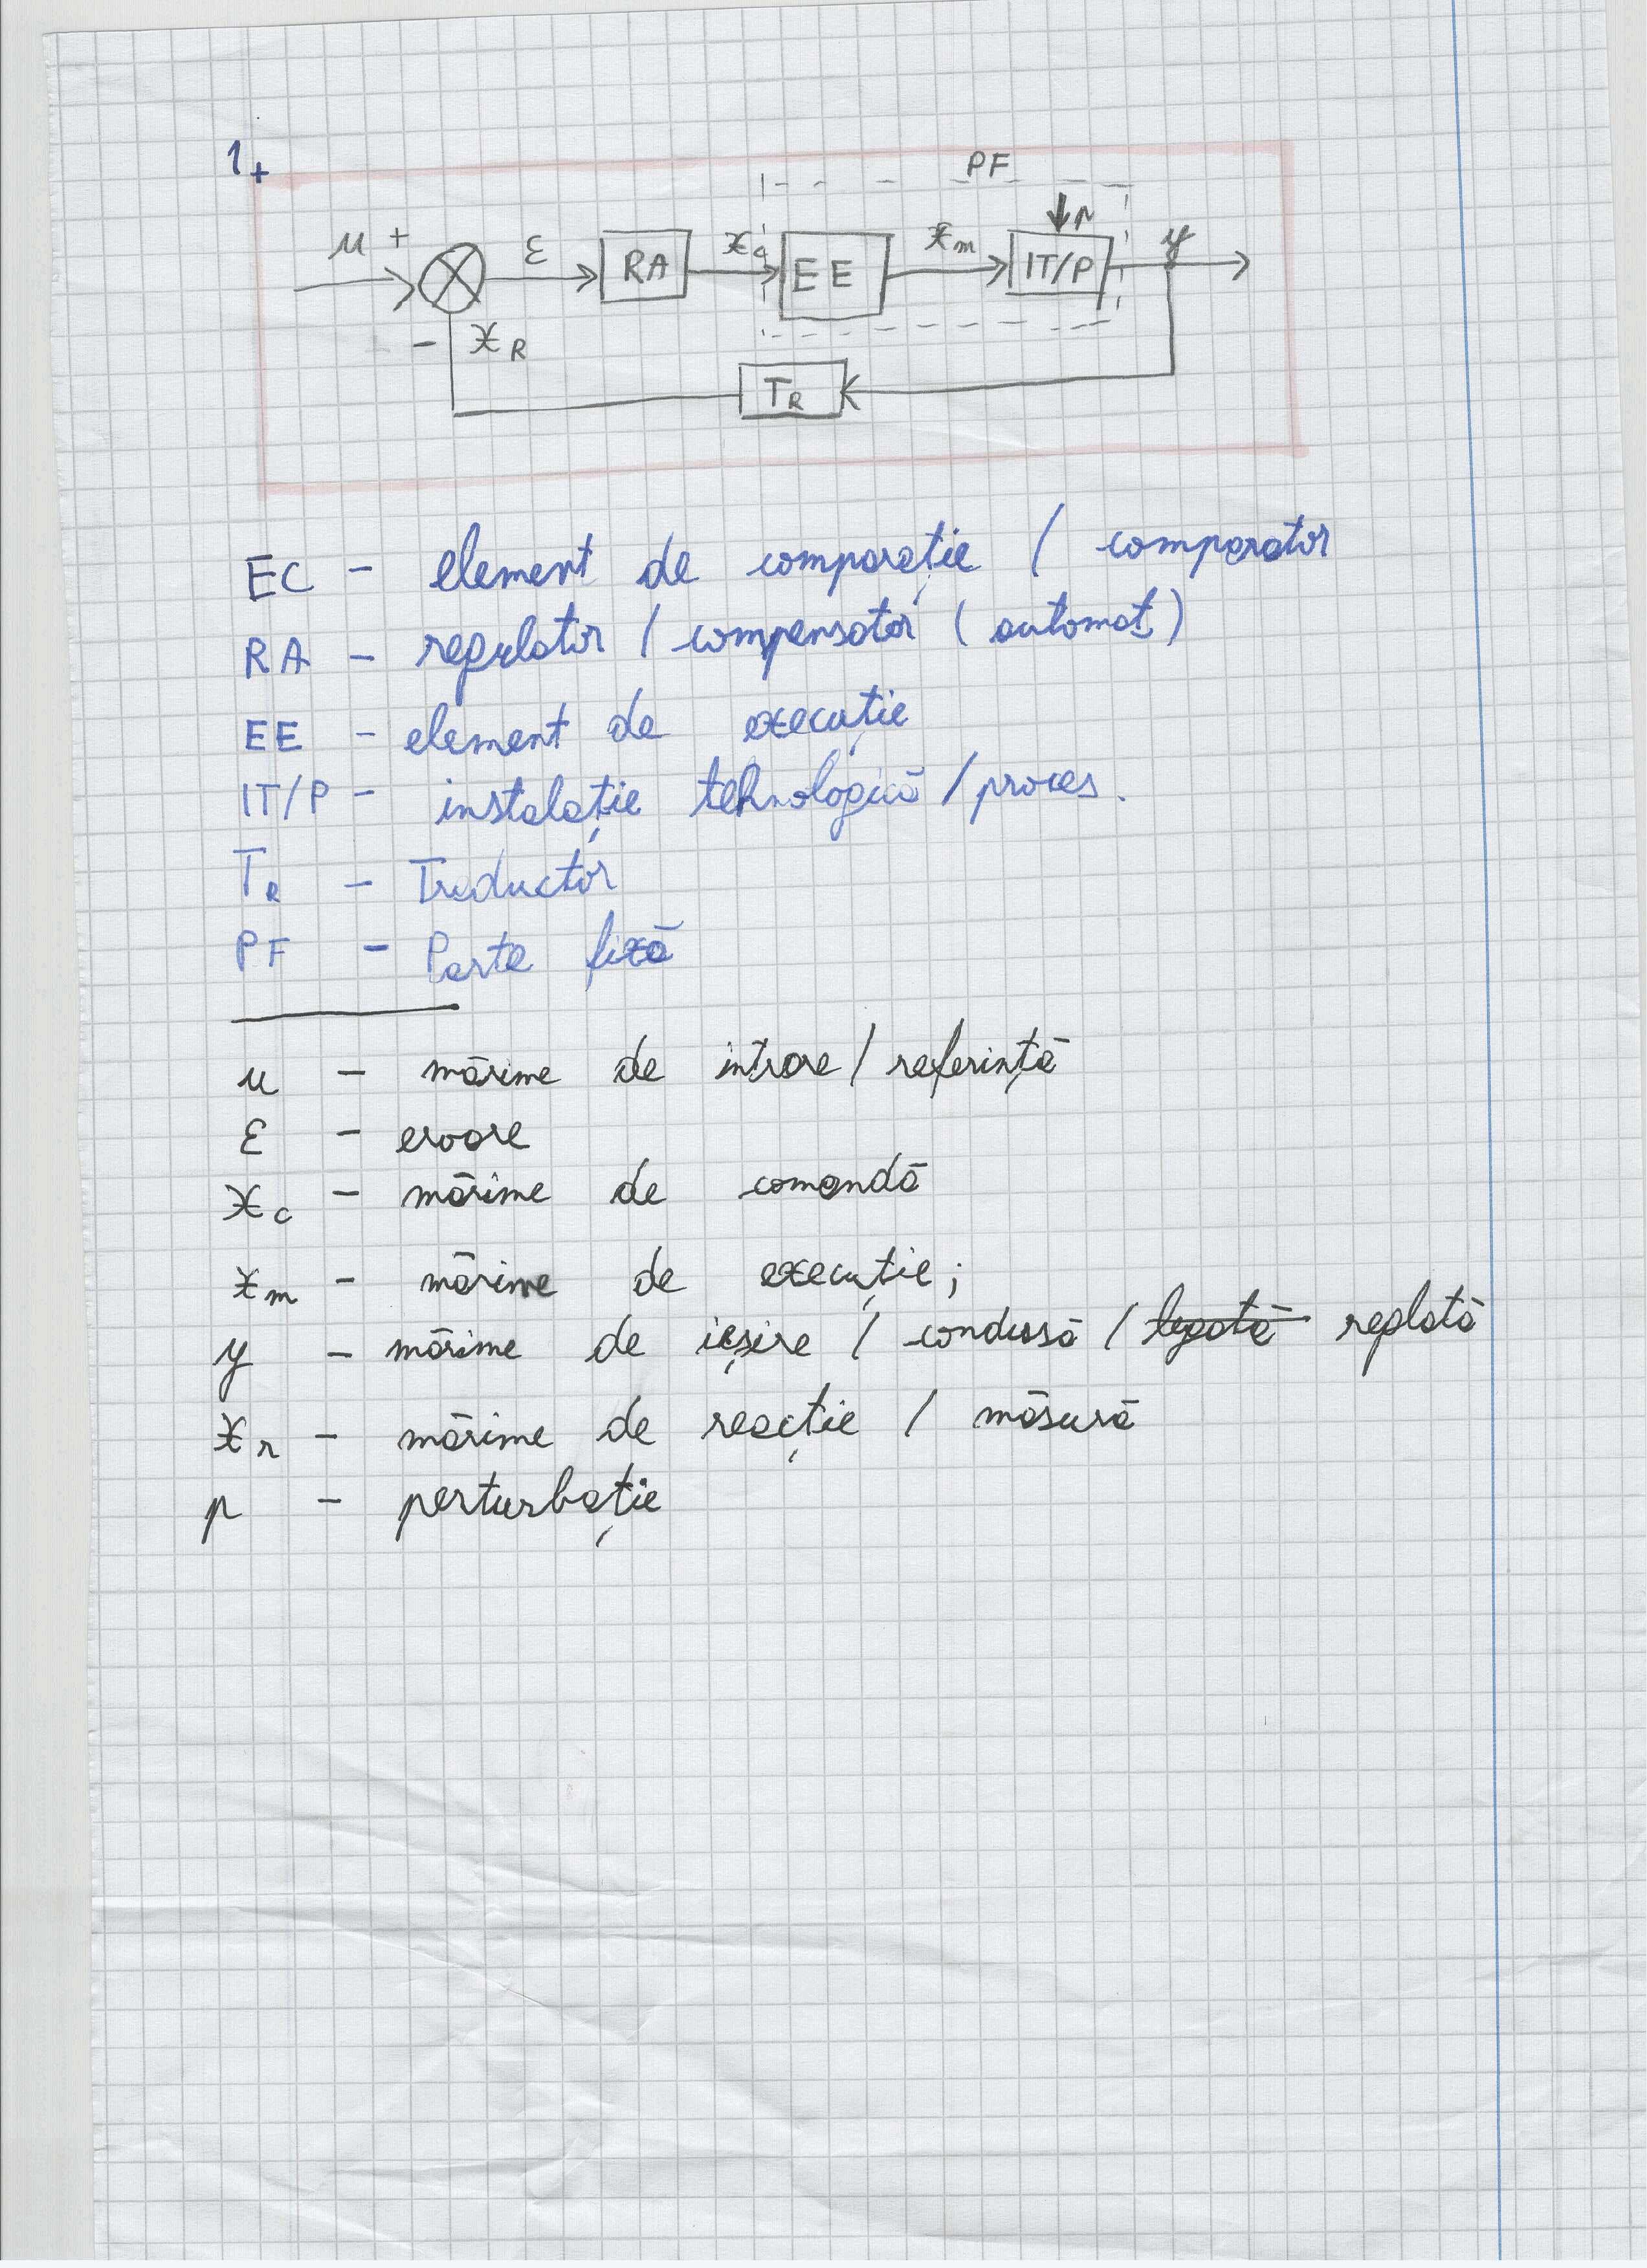 1.
PF
u + ε RA x_c EE x_m IT/P p y
- x_R
T_R
EC - element de comparație / comparator
RA - regulator / compensator (automat)
EE - element de execuție
IT/P - instalație tehnologică / proces.
T_R - Traductor
PF - Parte fixă
u - mărime de intrare / referință
ε - eroare
x_c - mărime de comandă
x_m - mărime de execuție;
y - mărime de ieșire / condusă / legată reglată
x_r - mărime de reacție / măsură
p - perturbație